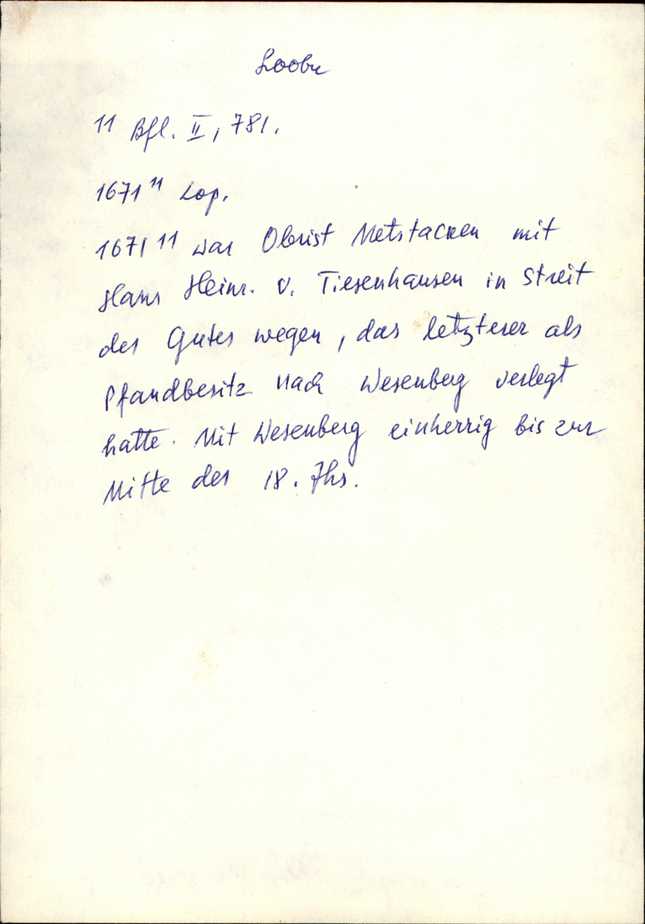 Loobu
11 Bfl. II, 781.
1671 11 Lop.
1671 11 war Oberist Metstacken mit
Hans Heinr. v. Tiesenhausen in Streit
des Gutes wegen, das letzterer als
Pfandbesitz nach Wesenberg verlegt
hatte. Mit Wesenberg einherrig bis zur
Mitte des 18. Jhs.